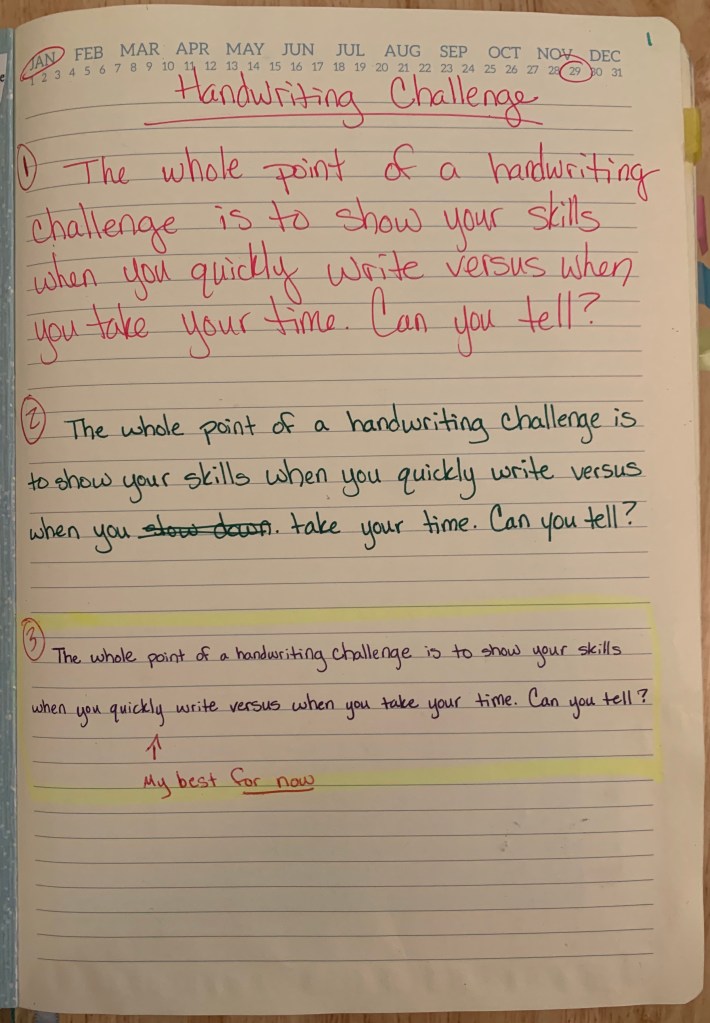 1
JAN FEB MAR APR MAY JUN JUL AUG SEP OCT NOV DEC
1 2 3 4 5 6 7 8 9 10 11 12 13 14 15 16 17 18 19 20 21 22 23 24 25 26 27 28 29 30 31
Handwriting Challenge
① The whole point of a handwriting
challenge is to show your skills
when you quickly write versus when
you take your time. Can you tell?
② The whole point of a handwriting challenge is
to show your skills when you quickly write versus
when you slow down. take your time. Can you tell?
③ The whole point of a handwriting challenge is to show your skills
when you quickly write versus when you take your time. Can you tell?
↑
My best for now